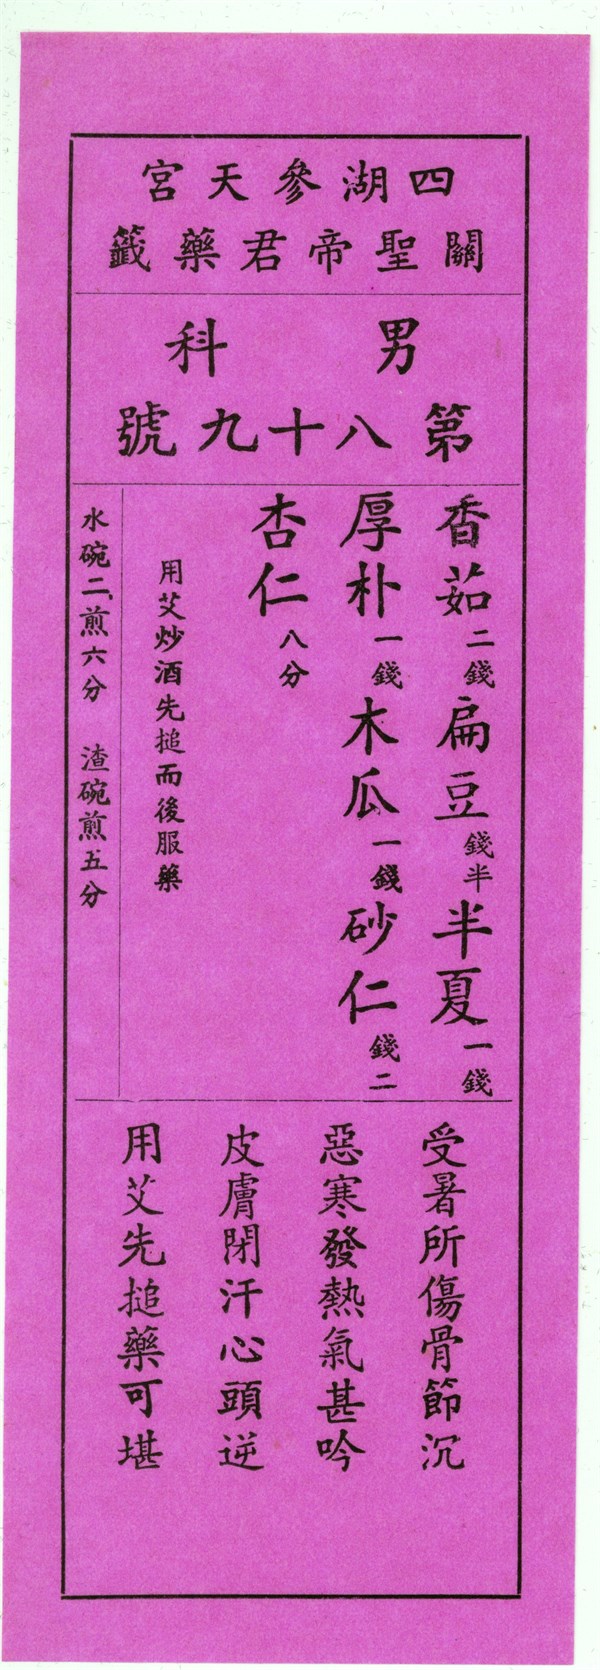 四湖參天宮
關聖帝君藥籤
男科
第八十九號
香茹二錢扁豆錢半半夏一錢
厚朴一錢木瓜一錢砂仁錢二
杏仁八分
用艾炒酒先搥而後服藥
水碗二、煎六分 渣碗煎五分
受暑所傷骨節沉
惡寒發熱氣甚吟
皮膚閉汗心頭逆
用艾先搥藥可堪